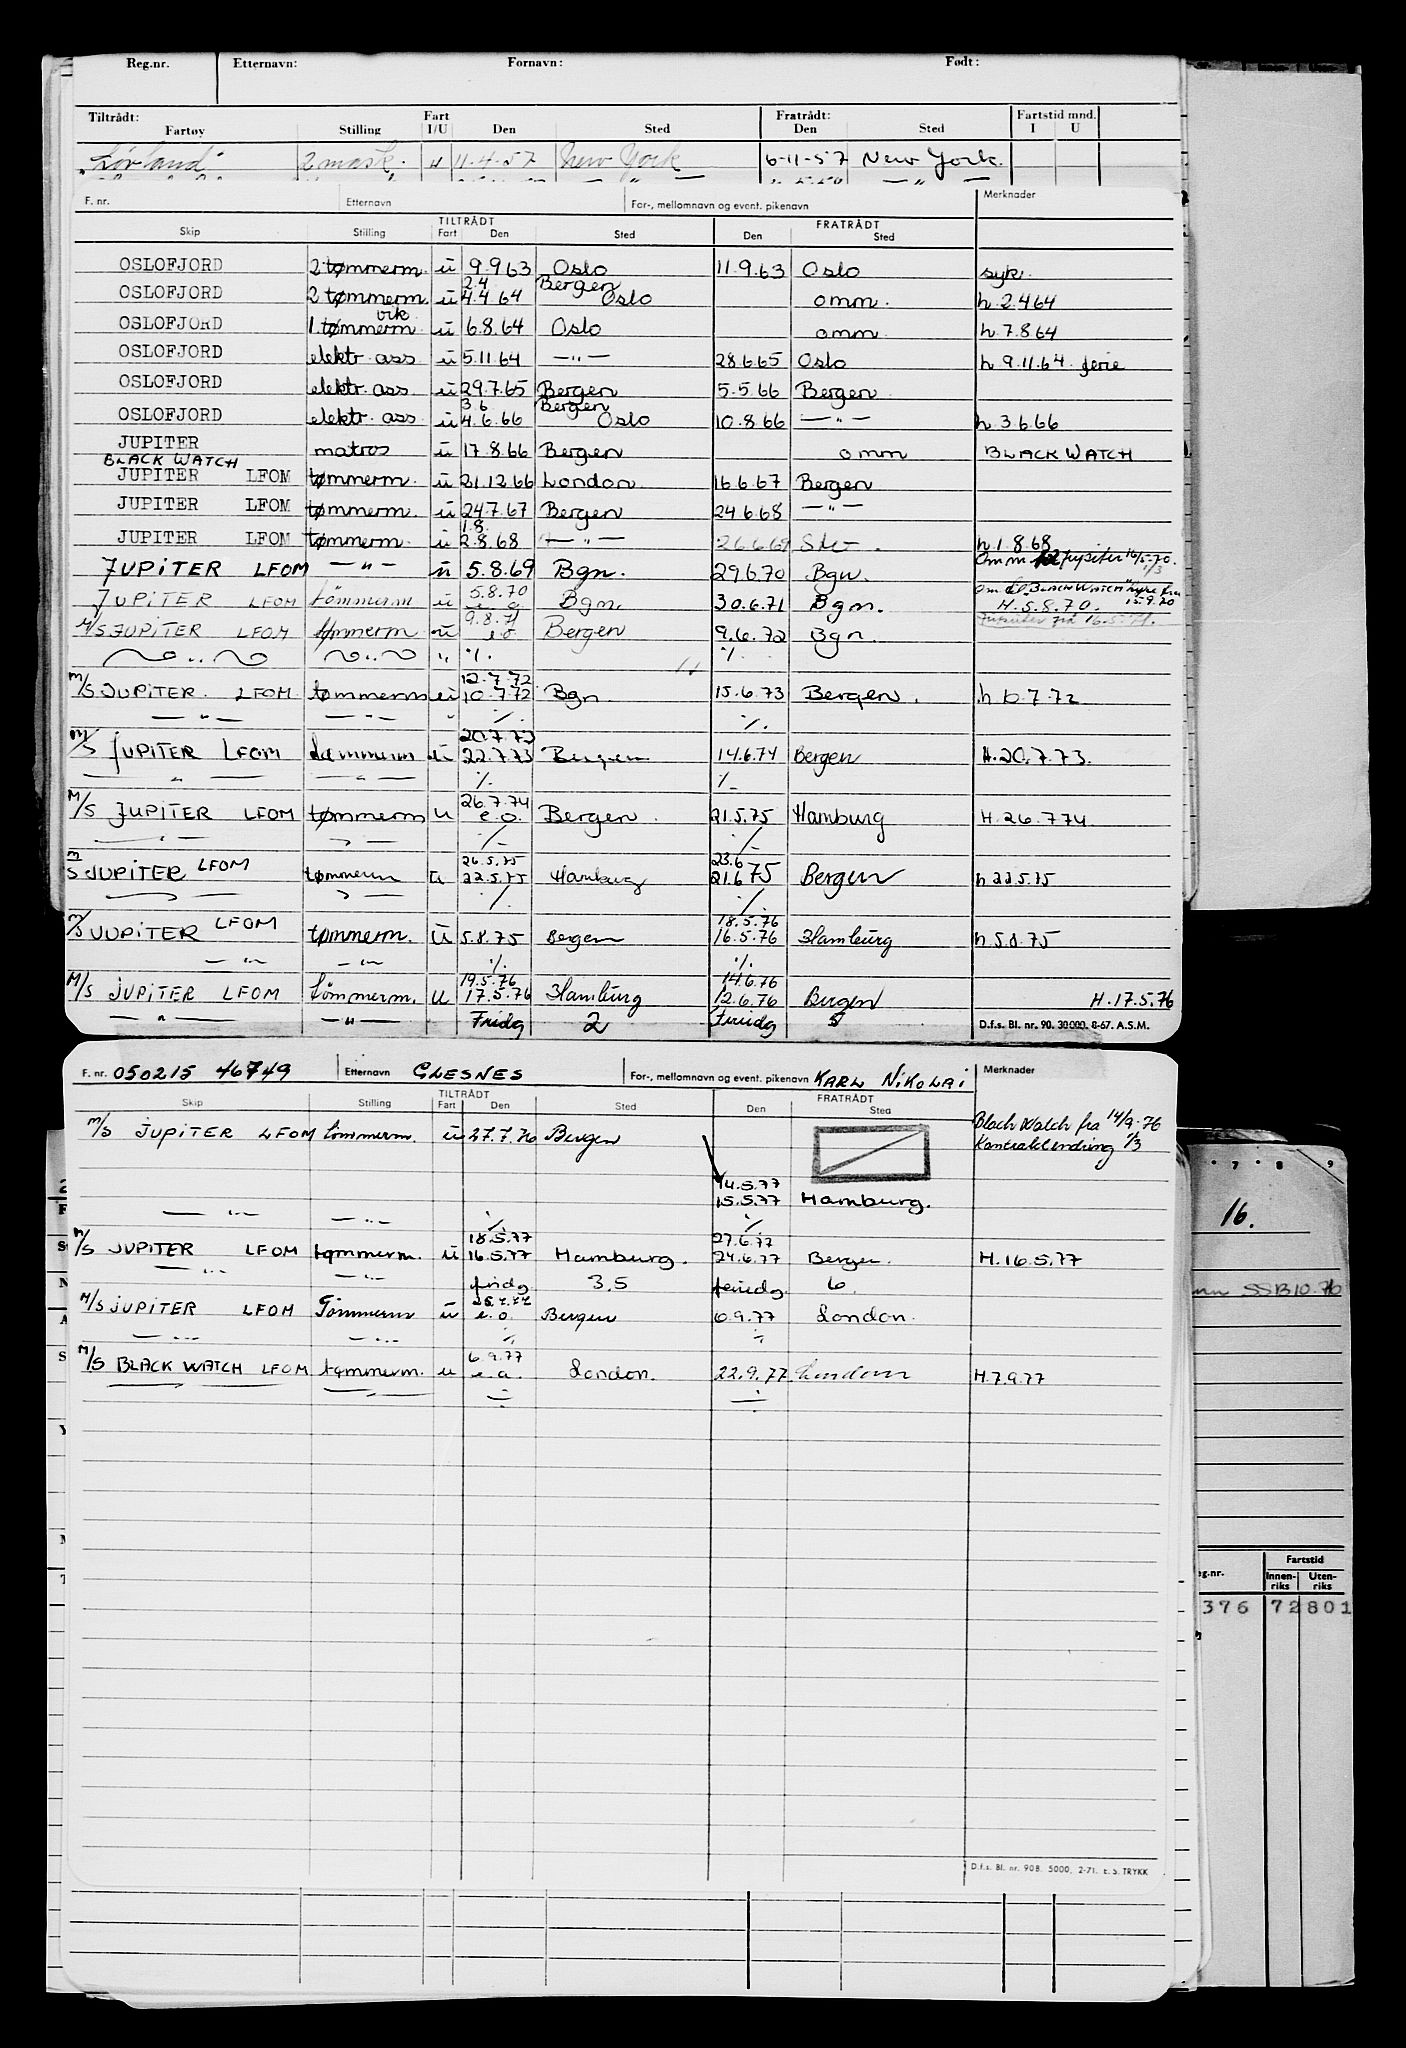 Reg.nr. Etternavn: Fornavn: Født:
Tiltrådt: Fart Fratrådt: Fartstid mnd.
Fartøy Stilling I/U Den Sted Den Sted I U
"Lövland" 2 mask. u 11-4-57 New York 6-11-57 New York.
F. nr. Etternavn For-, mellomnavn og event. pikenavn Merknader
TILTRÅDT FRATRÅDT
Skip Stilling Fart Den Sted Den Sted
OSLOFJORD 2 tømmerm. ü 9.9.63 Oslo 11.9.63 Oslo syk.
2.4 Bergen
OSLOFJORD 2 tømmerm. ü 4.4.64 Oslo omm. h. 2.4.64
vik.
OSLOFJORD 1. tømmerm ü 6.8.64 Oslo omm. h. 7.8.64
OSLOFJORD elektr. ass ü 5.11.64 —"— 28.6.65 Oslo h 9.11.64 ferie
OSLOFJORD elektr. ass ü 29.7.65 Bergen 5.5.66 Bergen
3.6 Bergen
OSLOFJORD elektr. ass ü 4.6.66 Oslo 10.8.66 —"— h. 3.6.66
JUPITER matros ü 17.8.66 Bergen omm BLACK WATCH
BLACK WATCH
JUPITER LFOM tømmerm. ü 21.12.66 London 16.6.67 Bergen
JUPITER LFOM tømmerm. ü 24.7.67 Bergen 24.6.68 —"—
1.8.
JUPITER LFOM tømmerm. ü 2.8.68 —"— 26.6.69 h 1.8.68
JUPITER LFOM —"— ü 5.8.69 Bgn. 29.6.70 Bgn. Omm Jupiter 16/5-70. 1/3
5.8.70 Om til "BLACK WATCH" hyre fra 15.9.70
JUPITER LFOM tömmerm ü e.o Bgn. 30.6.71 Bgn. H. 5.8.70.
9.8.71 Jupiter fra 16.5.71.
M/S JUPITER LFOM tømmerm ü e.o Bergen 9.6.72 Bgn.
" " " ·/. ·/.
12.7.72
M/S JUPITER. LFOM. tømmerm ü 10.7.72 Bgn 15.6.73 Bergen. h 10.7.72
—"— —"— " ·/. ·/.
20.7.73
M/S JUPITER LFOM tømmerm ü 22.7.73 Bergen 14.6.74 Bergen H. 20.7.73.
—"— —"— ·/. ·/.
26.7.74
M/S JUPITER LFOM tømmerm u e.o. Bergen. 21.5.75 Hamburg H. 26.7.74.
—"— —"— ·/. ·/.
26.5.75 23.6
M/S JUPITER LFOM tømmerm ü 22.5.75 Hamburg 21.6.75 Bergen h 22.5.75
—"— —"— ·/. ·/.
18.5.76
M/S JUPITER LFOM tømmerm. ü 5.8.75 Bergen 16.5.76 Hamburg h 5.8.75
—"— —"— ·/. ·/.
19.5.76 14.6.76
M/S JUPITER LFOM tömmerm. u 17.5.76 Hamburg 12.6.76 Bergen H. 17.5.76
—"— —"— Fridg 2 Feriedg 5 D.f.s. Bl. nr. 90. 30000. 8-67. A.S.M.
F. nr. 050215 46749 Etternavn GLESNES For-, mellomnavn og event. pikenavn KARL NIKOLAI Merknader
TILTRÅDT FRATRÅDT
Skip Stilling Fart Den Sted Den Sted
M/S JUPITER LFOM tömmerm. ü 27.7.76 Bergen Black Watch fra 14/9-76
Kontraktendring 1/3
14.5.77
15.5.77 Hamburg.
—"— —"— ·/. ·/.
18.5.77 27.6.77
M/S JUPITER LFOM tømmerm. ü 16.5.77 Hamburg. 24.6.77 Bergen. H. 16.5.77
—"— —"— fridg. 3,5 feriedg. 6.
M/S JUPITER LFOM Tömmerm ü e.o. Bergen 6.9.77 London.
—"— —"— ·/. ·/.
6.9.77
M/S BLACK WATCH LFOM tømmerm. u e.o. London. 22.9.77 London H. 7.9.77
—"— —"— ·/. ·/.
D.f.s. Bl. nr. 90B. 5000, 2-71. E. S. TRYKK
7 8 9
16.
SSB 10.76
eg.nr. Fartstid
Innen-riks Uten-riks
376 72 801